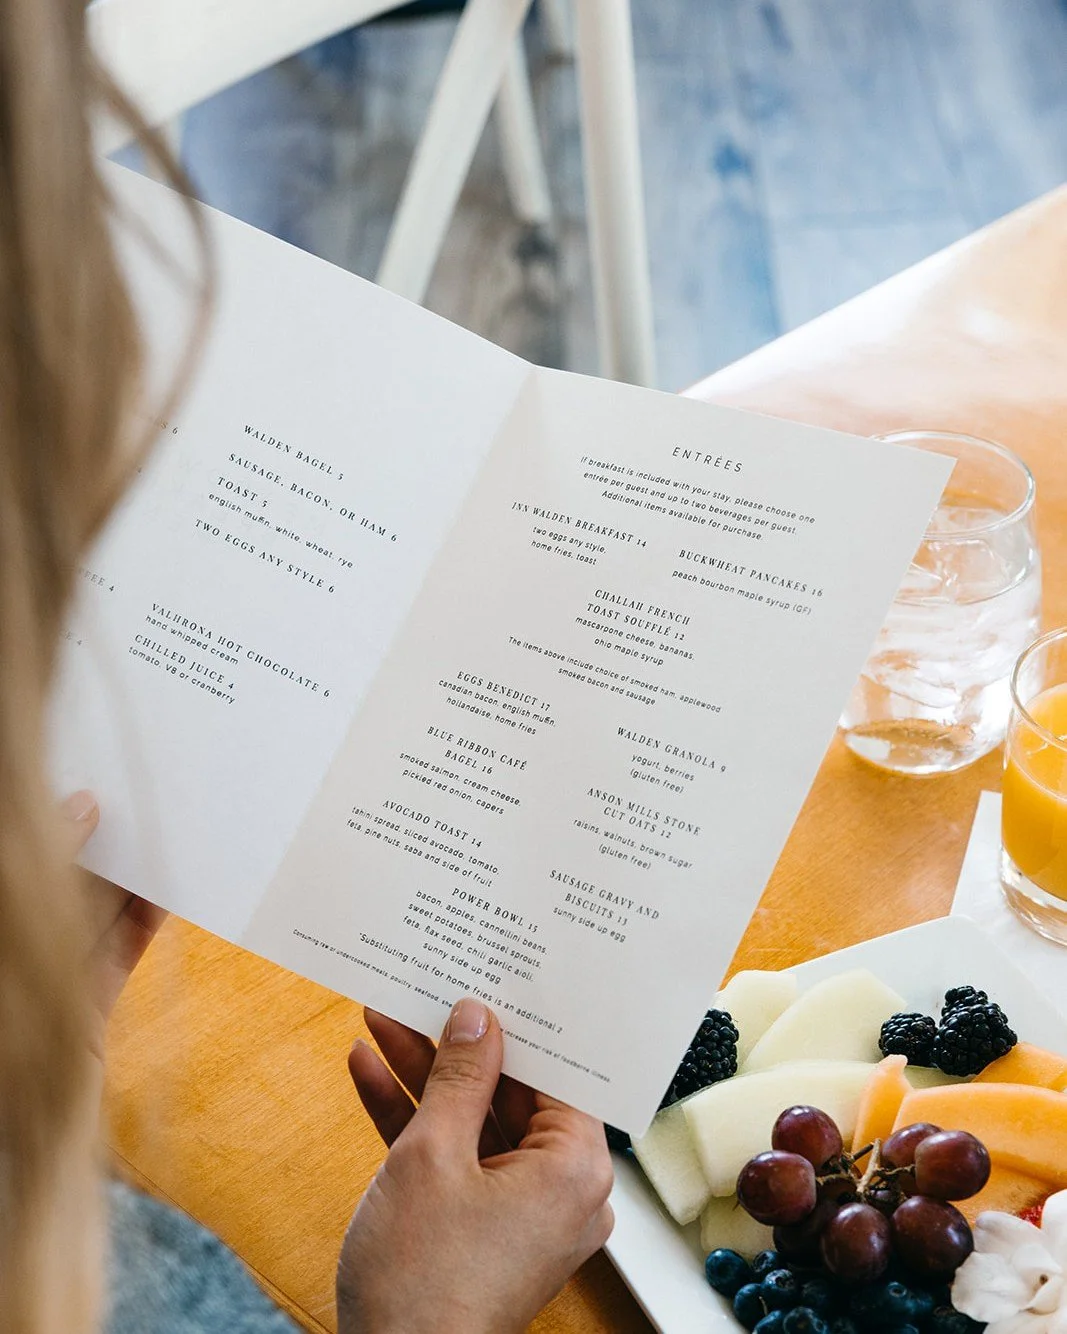 S 6
FEE 4
E 4
4
WALDEN BAGEL 5
SAUSAGE, BACON, OR HAM 6
TOAST 5
english muffin, white, wheat, rye
TWO EGGS ANY STYLE 6
VALHRONA HOT CHOCOLATE 6
hand whipped cream
CHILLED JUICE 4
tomato, V8 or cranberry
ENTRÉES
If breakfast is included with your stay, please choose one
entrée per guest and up to two beverages per guest.
Additional items available for purchase.
INN WALDEN BREAKFAST 14
two eggs any style,
home fries, toast
BUCKWHEAT PANCAKES 16
peach bourbon maple syrup (GF)
CHALLAH FRENCH
TOAST SOUFFLÉ 12
mascarpone cheese, bananas,
ohio maple syrup
The items above include choice of smoked ham, applewood
smoked bacon and sausage
EGGS BENEDICT 17
canadian bacon, english muffin,
hollandaise, home fries
BLUE RIBBON CAFÉ
BAGEL 16
smoked salmon, cream cheese,
pickled red onion, capers
AVOCADO TOAST 14
tahini spread, sliced avocado, tomato,
feta, pine nuts, saba and side of fruit
WALDEN GRANOLA 9
yogurt, berries
(gluten free)
ANSON MILLS STONE
CUT OATS 12
raisins, walnuts, brown sugar
(gluten free)
SAUSAGE GRAVY AND
BISCUITS 13
sunny side up egg
POWER BOWL 15
bacon, apples, cannellini beans,
sweet potatoes, brussel sprouts,
feta, flax seed, chili garlic aioli,
sunny side up egg
*Substituting fruit for home fries is an additional 2
Consuming raw or undercooked meats, poultry, seafood, she increase your risk of foodborne illness.